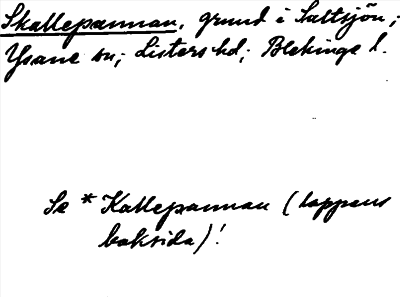 Skallepannan, grund i Saltsjön;
Ysane sn; Listers hd; Blekinge l.
Se * Kallepannan (lappens
baksida)!